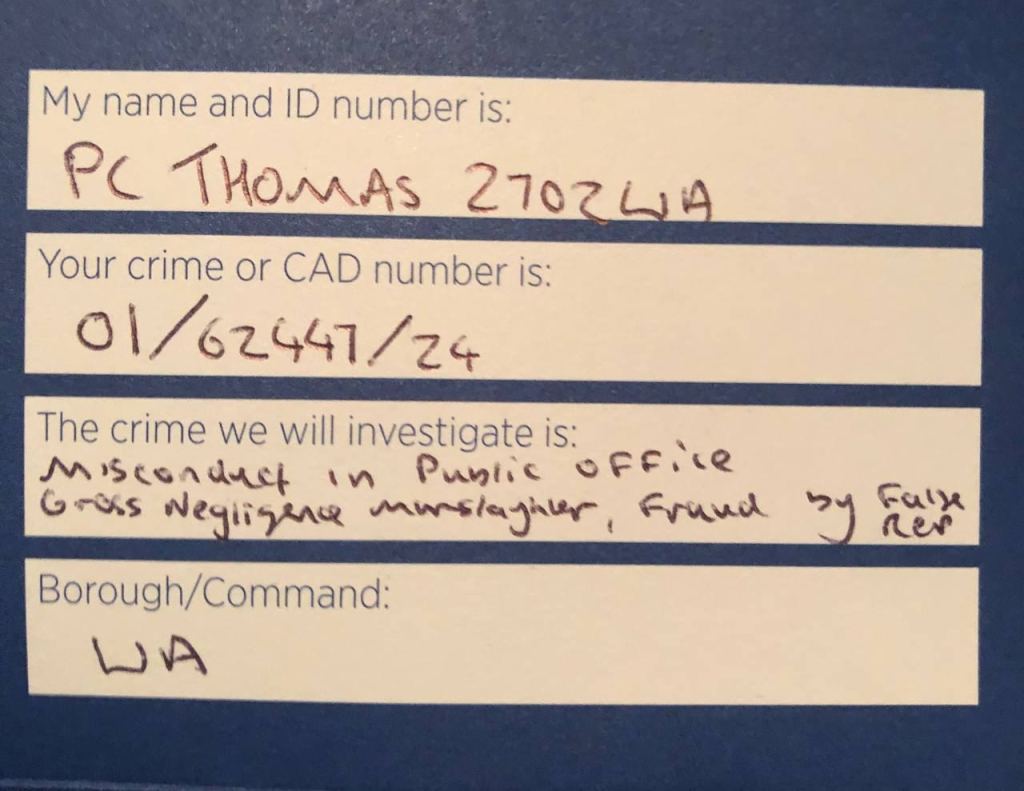 My name and ID number is:
PC THOMAS 2702WA
Your crime or CAD number is:
01/62447/24
The crime we will investigate is:
Misconduct in Public office
Gross Negligence Manslaughter, Fraud by False
Rep
Borough/Command:
WA